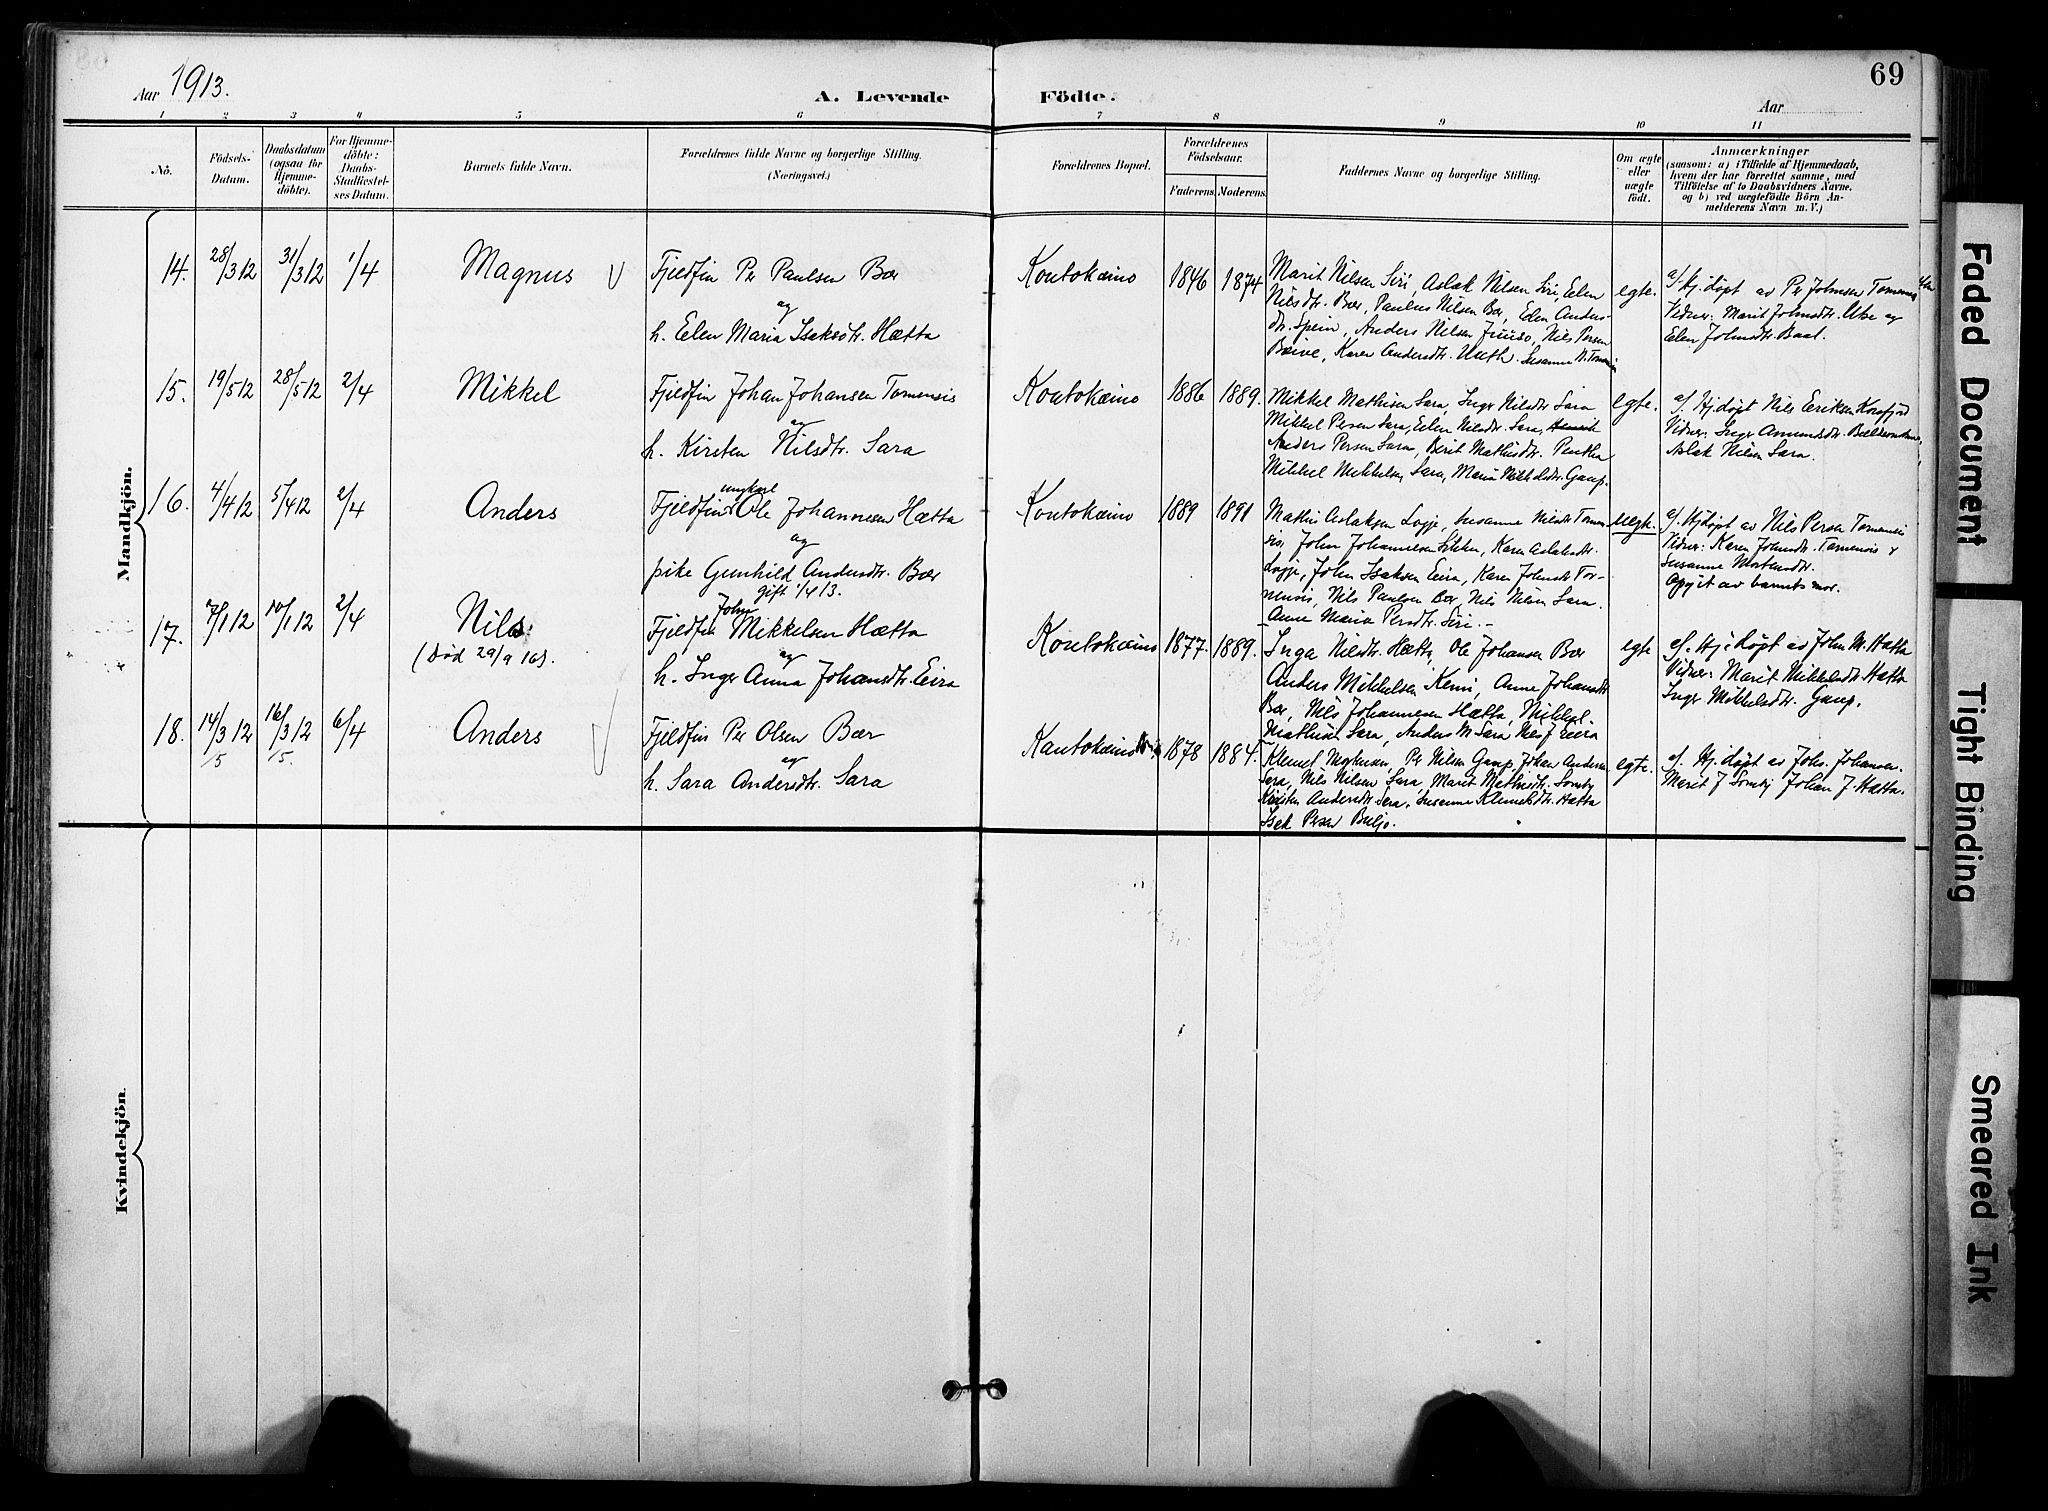 Aar 1913.
A. Levende Födte.
Aar
69
1 2 3 4 5 6 7 8 9 10 11
No.
Födsels-Datum.
Daabsdatum (ogsaa för Hjemme-döbte).
For Hjemme-döbte: Daabs-Stadfæstel-ses Datum.
Barnets fulde Navn.
Forældrenes fulde Navne og borgerlige Stilling.
(Næringsvei.)
Forældrenes Bopæl.
Forældrenes Födselsaar.
Faderens. Moderens.
Faddernes Navne og borgerlige Stilling.
Om ægte eller uægte födt.
Anmærkninger
(saasom: a) i Tilfælde af Hjemmedaab,
hvem der har forrettet samme, med
Tilföielse af to Daabsvidners Navne,
og b) ved uægtefödte Börn An-
melderens Navn m. V.)
Mandkjön.
14. 28/3 12 31/3 12 1/4 Magnus
Fjeldfin Per Paulsen Bær
og
h. Ellen Maria Isaksdtr. Hætta
Koutokæino 1846 1874
Marit Nilsen Siri, Aslak Nilsen Siri, Elen
Nilsdtr. Bær, Paulus Nilsen Bær, Elen Anders-
dtr. Spein, Anders Nilsen Juuso, Nils Persen
Bæive, Karen Andersdtr. Uuth. Susanne N. Tornensis
egte.
a/. Hj. døpt av Per Johnsen Tornensis
Vidner: Marit Johnsdtr. Utse og
Elen Johnsdtr. Baal.
15. 19/5 12 28/5 12 2/4 Mikkel
Fjeldfin Johan Johansen Tornensis
og
h. Kirsten Nilsdtr. Sara
Koutokæino 1886 1889.
Mikkel Mathisen Sara, Inger Nilsdtr Sara
Mikkel Persen Sara, Elen Nilsdtr. Sara,
Anders Persen Sara, Berit Mathisdtr. Pentha
Mikkel Mikkelsen Sara, Maria Mikkelsdtr. Gaup.
egte.
a/. Hj.døpt Nils Eriksen Korsfjord
Vidner: Inger Amundsdtr.
Aslak Nilsen Sara.
16. 4/4 12 5/4 12 2/4 Anders
Fjeldfin ungkarl Ole Johannesen Hætta
og
pike Gunhild Andersdtr. Bær
gift 1/4 13.
Koutokæino 1889 1891
Mathis Aslaksen Logje, Susanne Nilsdtr Tornen-
sis, John Johannesen Sikku, Karen Aslaksdtr.
Logje, John Isaksen Eira, Karen Johnsdtr Tor-
nensis, Nils Paulsen Bær, Nils Nilsen Sara.
Anne Maria Persdtr. Siri.
uegte.
a/. Hjdøpt av Nils Persen Tornensis
Vidner: Karen Johnsdtr. Tornensis &
Susanne Mortensdtr.
Opgit av barnets mor.
17. 7/1 12 10/1 12 2/4 Nils.
(død 29/9 16).
Fjeldfin John Mikkelsen Hætta
og
h. Inger Anna Johansdtr. Eira
Koutokæino 1877. 1889.
Inga Nilsdtr. Hætta, Ole Johansen Bær
Anders Mikkelsen Kemi, Anne Johansdtr
Bær, Nils Johannesen Hætta, Mikkel
Mathisen Sara, Anders M Sara Nils J Eira
egte
a/. Hj. døpt av John M. Hætta
Vidner: Marit Mikkelsdtr Hætta
Inger Mikkelsdtr. Gaup.
18. 14/3 12 16/3 12 6/4 Anders
/5 /5.
Fjeldfin Per Olsen Bær
og
h. Sara Andersdtr. Sara
Kautokæino 1878 1884.
Klemet Per Nilsen Gaup Johan Andersen
Sara, Nils Nilsen Sara, Marit Mathisdtr. Somby
Kirsten Andersdtr Sara, Susanne Klemetsdtr. Hætta
Isak Persen Buljo.
egte.
a/. Hj. døpt av Johs. Johansen.
Marit J Somby Johan J. Hætta.
Kvindekjön.
Faded Document
Tight Binding
Smeared Ink